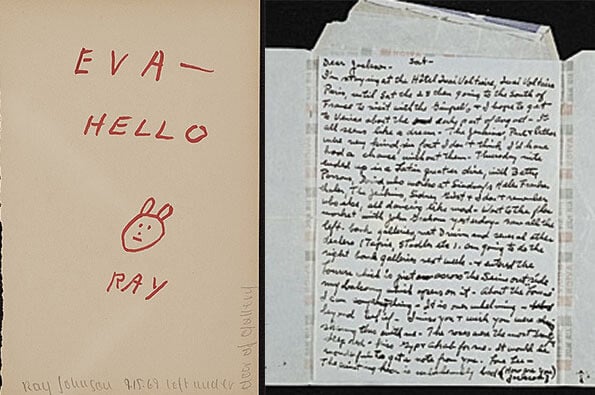 EVA —
HELLO
RAY
Ray Johnson 9.15.69 left under
door of gallery
Dear Graham - Sat -
I'm staying at the Hôtel Quai Voltaire, Quai Voltaire
Paris, until Sat the 28 then going to the South of
France to visit with the + I hope to get
to Venice about the early part of August - It
all seems like a dream - The Paul + Esther
were very kind, in fact I don't think I'd have
had a chance without them - Thursday nite
ended up in a Latin quarter dive, with Betty
Parsons, David who works at Helen Franken-
thaler, The Sidney Geist + I don't remember
who else, all dancing like mad - Went to the flea
market with John Graham yesterday - saw all the
left bank galleries, met Drouin and several other
dealers (Tapié, Stadler etc). am going to do the
right bank galleries next week - + entered the
Louvre which is just across the Seine outside
my balcony which opens on it. About the Louvre
I can say anything - It is over whelming -
beyond belief. I miss you + wish you were
sharing this with me - The roses were the most beautiful
deep red - kiss Gyp + Ahab for me - It would be
wonderful to get a note from you - love Lee -
The painting here is unbelievably bad (How are you
Jackson?)